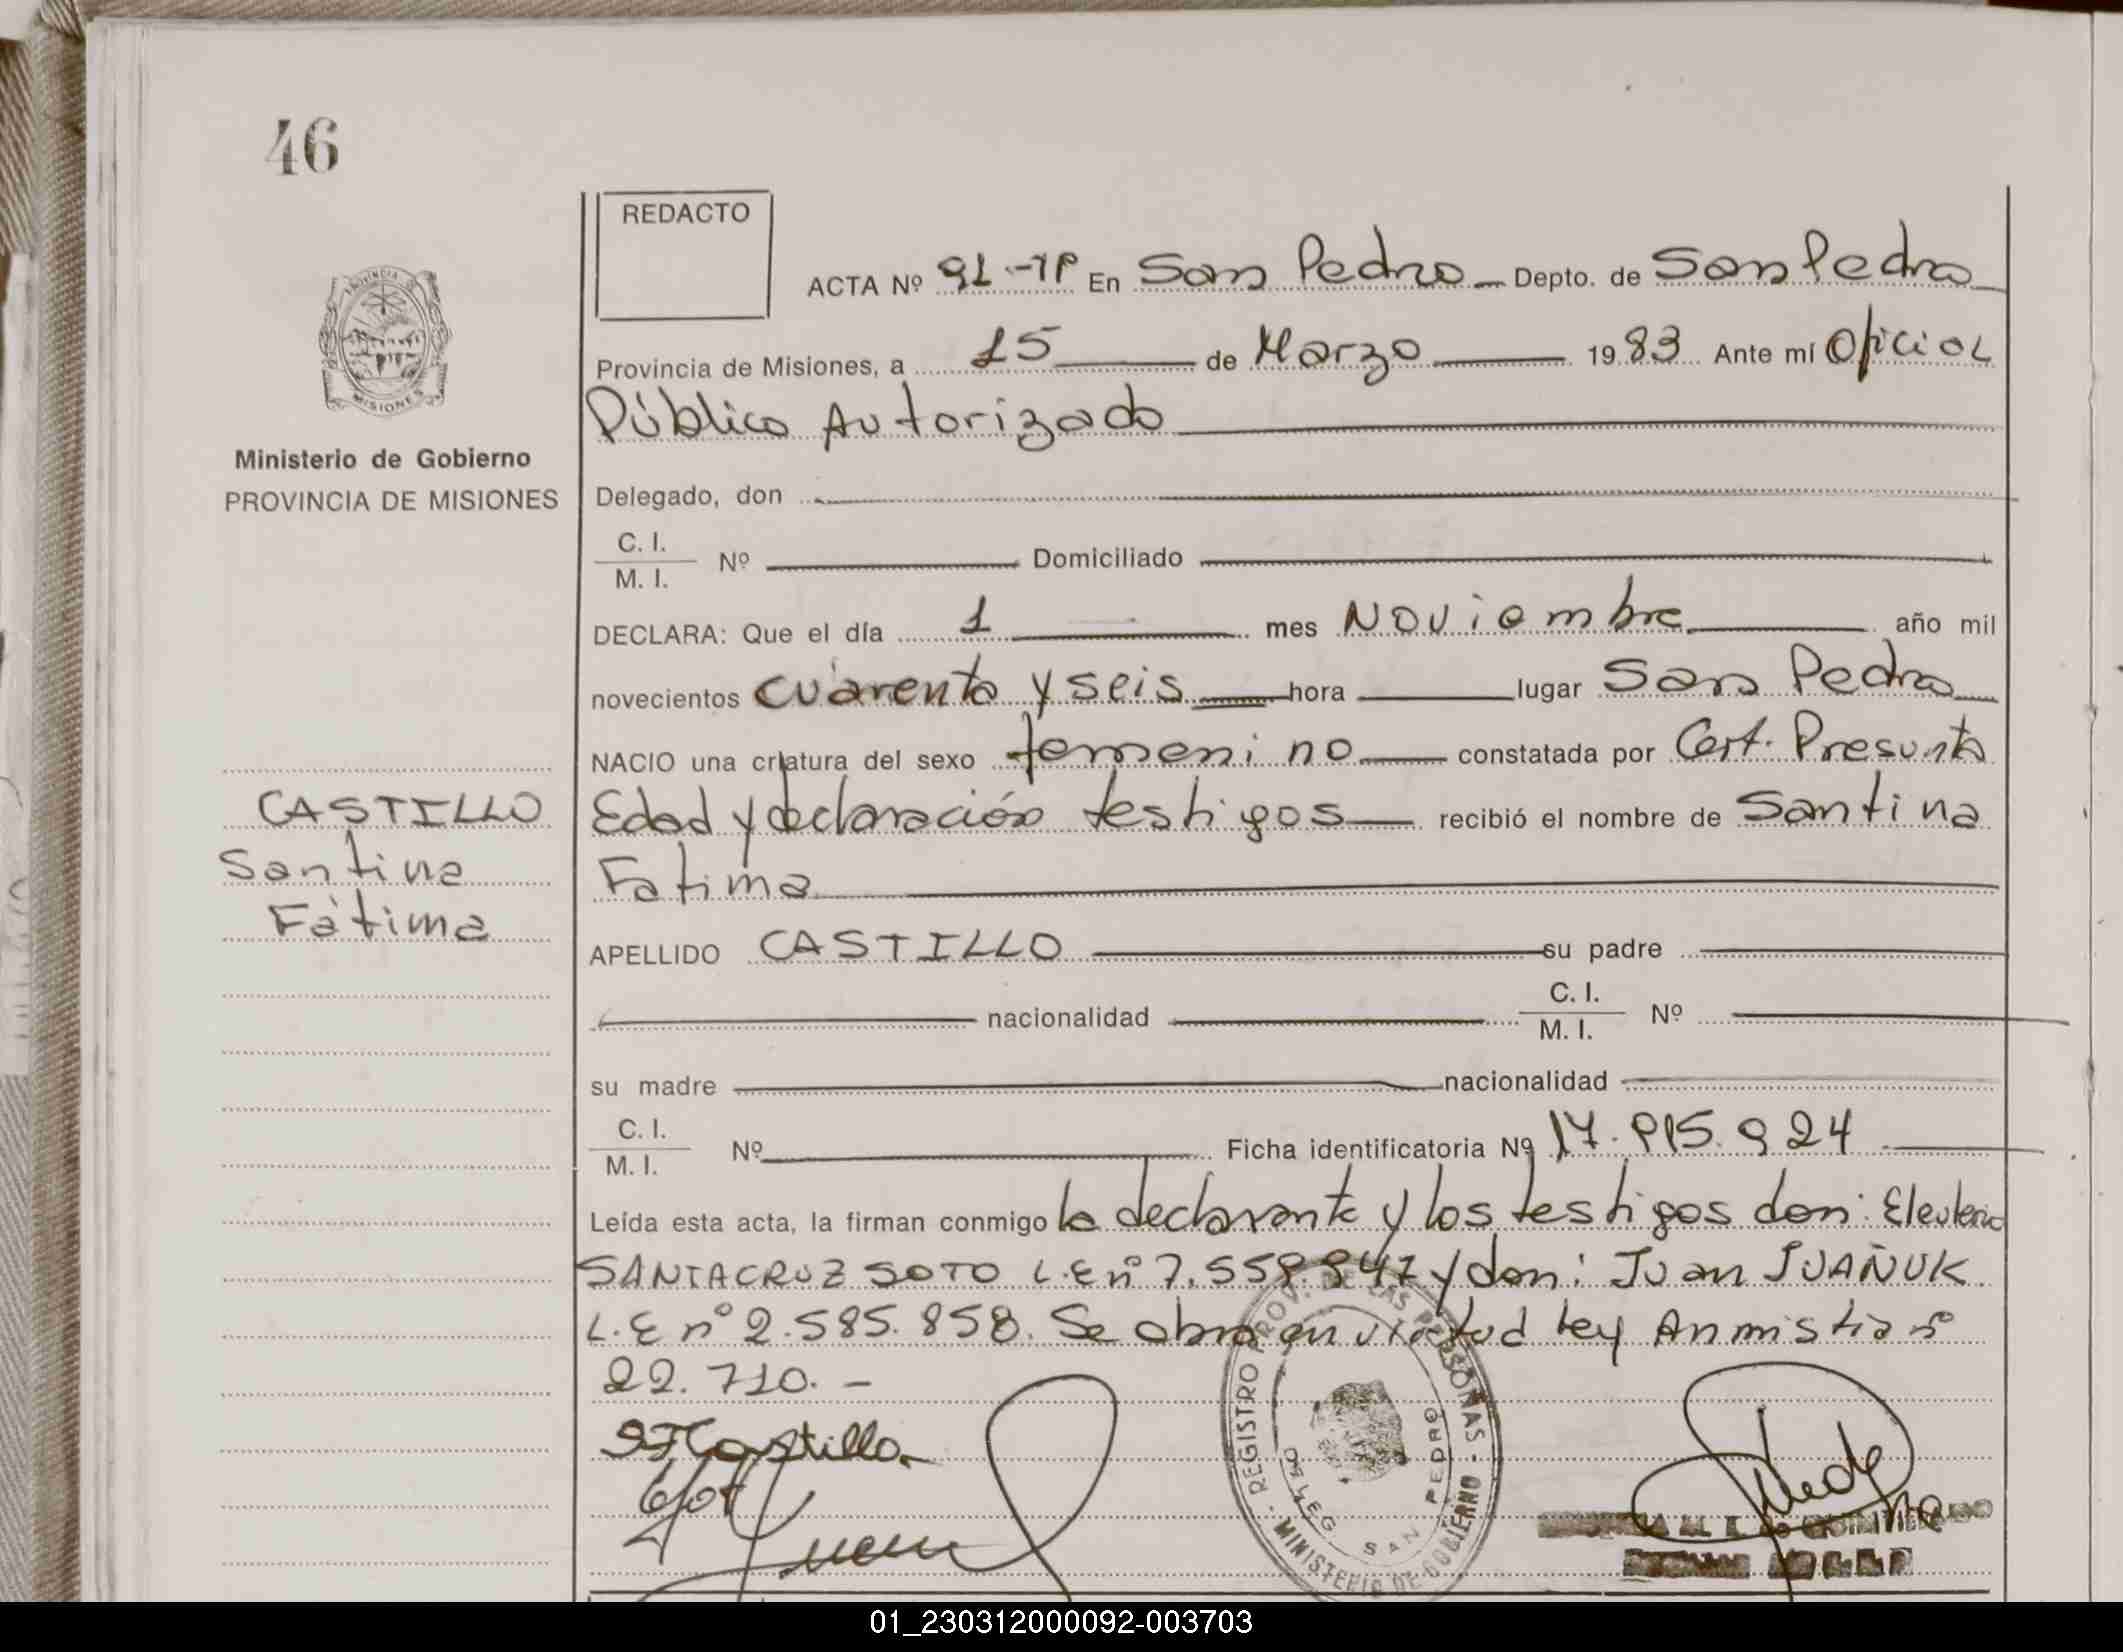 46
REDACTO
ACTA Nº 91.-TP En San Pedro Depto. de San Pedro
Provincia de Misiones, a 15 de Marzo 1983 Ante mí Oficial
Público Autorizado
Ministerio de Gobierno
PROVINCIA DE MISIONES
Delegado, don
C. I.
M. I. Nº Domiciliado
DECLARA: Que el día 1 mes Noviembre año mil
novecientos cuarenta y seis hora lugar San Pedro
NACIO una criatura del sexo femenino constatada por Cert. Presunta
Edad y declaración testigos recibió el nombre de Santina
Fatima
CASTILLO
Santina
Fátima
APELLIDO CASTILLO su padre
nacionalidad C. I.
M. I. Nº
su madre nacionalidad
C. I.
M. I. Nº Ficha identificatoria Nº 17.915.924
Leída esta acta, la firman conmigo la declarante y los testigos don: Eleuterio
SANTACRUZ SOTO L.E nº 7.558.847 y don: Juan JUAÑUK
L.E nº 2.585.858. Se obra en virtud ley Anmistia nº
22.710.-
SFCastillo
REGISTRO PROV. DE LAS PERSONAS - MINISTERIO DE GOBIERNO
DELEG SAN PEDRO
PROVINCIA MISIONES
01_230312000092-003703